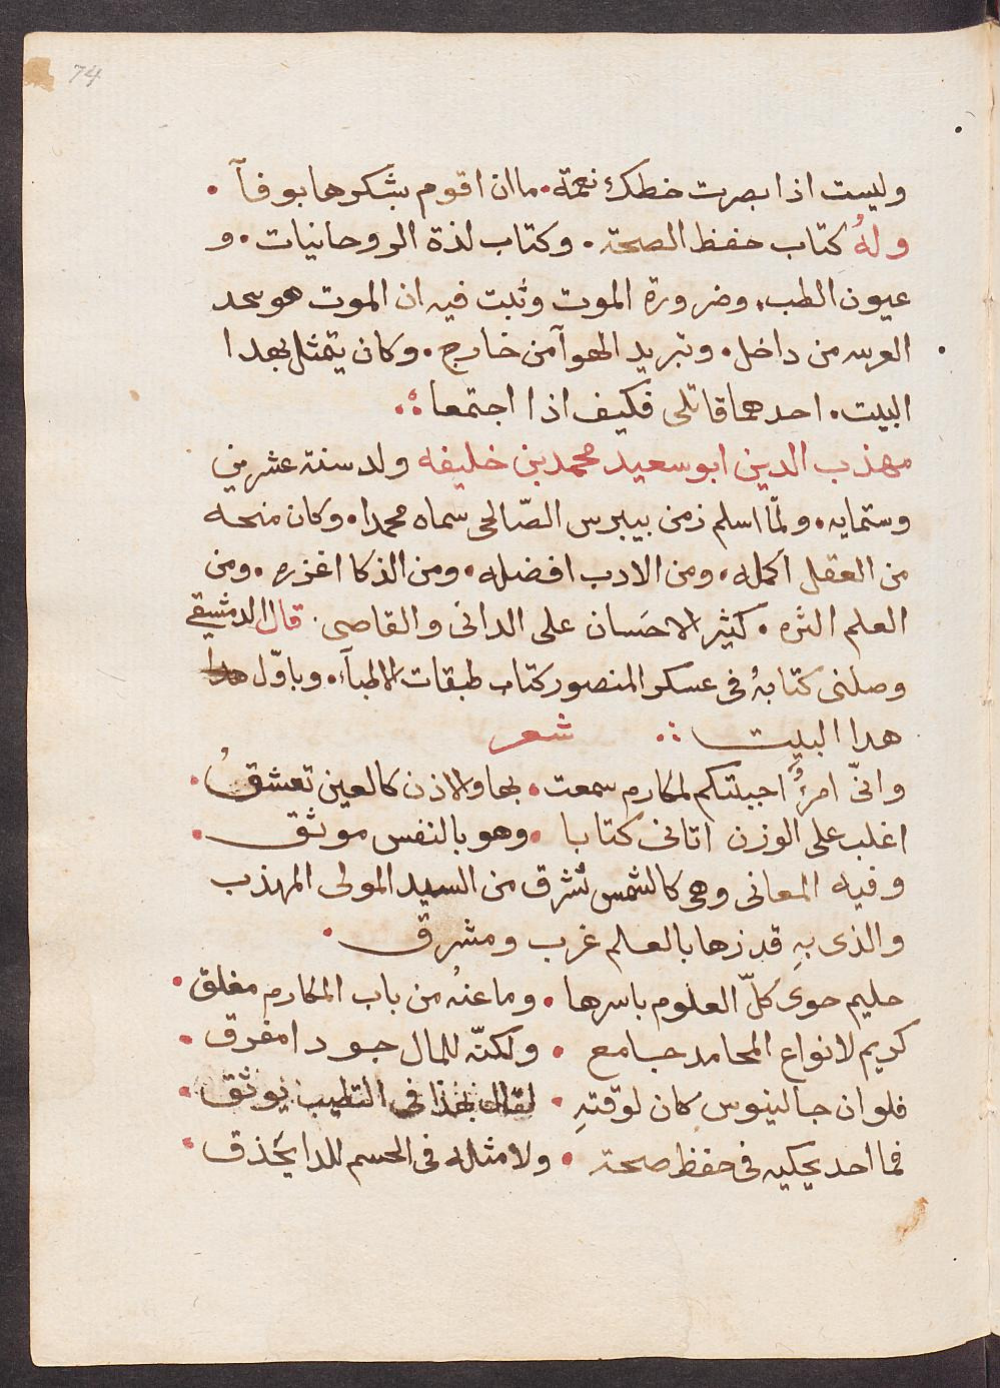 74
وليست اذا بصرت خطك نعمة • ما ان اقوم بشكرها بوفآ •
وله كتاب حفظ الصحة • وكتاب لذة الروحانيات • و
عيون الطب • وضرورة الموت وثبت فيه ان الموت هو
من داخل • وتبريد الهوآ من خارج • وكان يتمثل بهدا
البيت • احدهما قاتلى فكيف اذا اجتمعا
مهذب الدين ابو سعيد محمد بن خليفه ولد سنة عشرين
وستمايه • ولمّا اسلم زمن بيبرس الصّالحى سماه محمدا • وكان منحه
من العقل اكمله • ومن الادب افضله • ومن الذكا اغزره • ومن
العلم اثره • كثير الاحَسان على الدانى والقاصى • قال الدمشقي
وصلنى كتابهُ فى عسكر المنصور كتاب طبقات الاطبآء • وباوّل هدا
هدا البيت شعر
وانّى امرءٌ احببتكم لمكارم سمعت • بها والاذن كالعين تعشقُ •
اغلب على الوزن اتانى كتابا • وهو بالنفس موثق •
وفيه المعانى وهى كالشمس تشرق من السيد المولى المهذب
والذى بهِ قد زها بالعلم غرب ومشرق •
حليم حوى كلّ العلوم باسرها • وما عنهُ من باب المكارم مغلق •
كريم لانواع المحامد جامع • ولكنّه للمال جودا مفرق •
فلو ان جالينوس كان لوقتهِ • لقال بهذا فى التطبيب يوثق •
فما احد يحكيه فى حفظ صحة • ولا مثله فى الجسم للدا يحَذق •